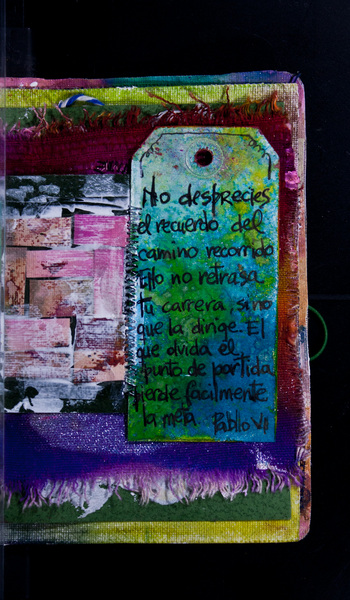 No desprecies
el recuerdo del
camino recorrido
Ello no retrasa
tu carrera, sino
que la dirige. El
que olvida el
punto de partida
pierde fácilmente
la meta Pablo VI